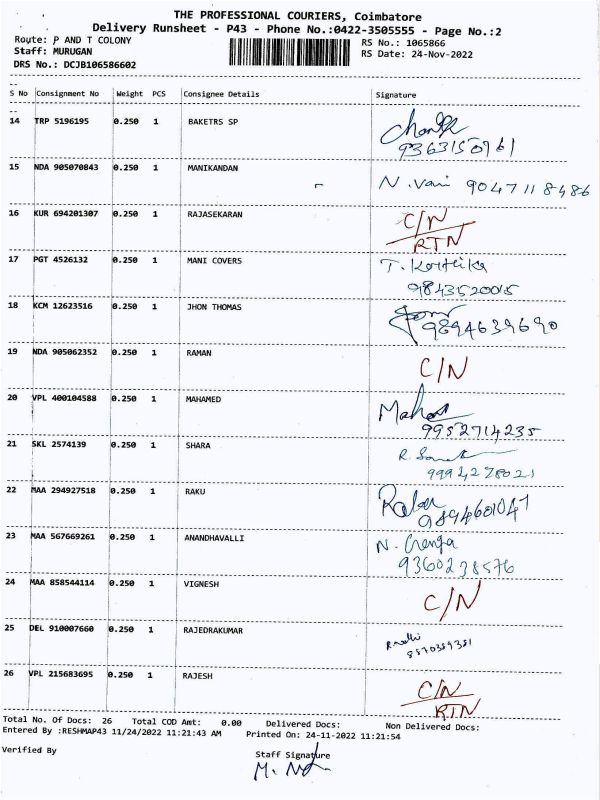 THE PROFESSIONAL COURIERS, Coimbatore
Delivery Runsheet - P43 - Phone No.:0422-3505555 - Page No.:2
Route: P AND T COLONY RS No.: 1065866
Staff: MURUGAN RS Date: 24-Nov-2022
DRS No.: DCJB106586602
S No Consignment No Weight PCS Consignee Details Signature
14 TRP 5196195 0.250 1 BAKETRS SP
15 NDA 905070843 0.250 1 MANIKANDAN N. Vani 9047118486
16 KUR 694201307 0.250 1 RAJASEKARAN C/N
RTN
17 PGT 4526132 0.250 1 MANI COVERS T. Karthika
9843520015
18 KCM 12623516 0.250 1 JHON THOMAS
9894639690
19 NDA 905062352 0.250 1 RAMAN C/N
20 VPL 400104588 0.250 1 MAHAMED
9952714235
21 SKL 2574139 0.250 1 SHARA
22 MAA 294927518 0.250 1 RAKU
9894601047
23 MAA 567669261 0.250 1 ANANDHAVALLI
9360238576
24 MAA 858544114 0.250 1 VIGNESH C/N
25 DEL 910007660 0.250 1 RAJEDRAKUMAR
26 VPL 215683695 0.250 1 RAJESH C/N
RTN
Total No. Of Docs: 26 Total COD Amt: 0.00 Delivered Docs: Non Delivered Docs:
Entered By :RESHMAP43 11/24/2022 11:21:43 AM Printed On: 24-11-2022 11:21:54
Verified By Staff Signature